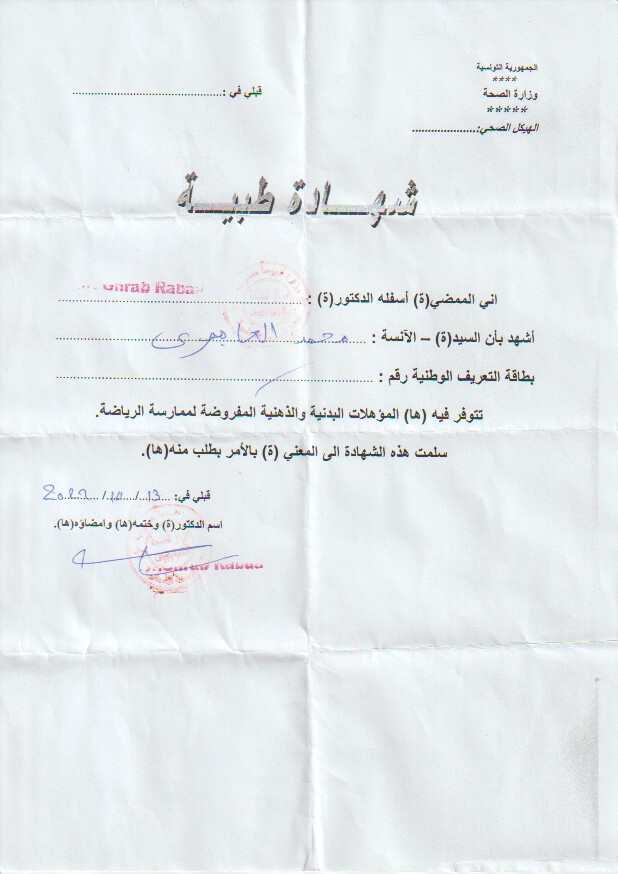 الجمهورية التونسية
****
وزارة الصحة
*****
الهيكل الصحي:....................
قبلي في :..........................................
شهادة طبية
اني الممضي(ة) أسفله الدكتور(ة) : Ghrab
أشهد بأن السيد(ة) – الآنسة : محمد
بطاقة التعريف الوطنية رقم : ..........................................
تتوفر فيه (ها) المؤهلات البدنية والذهنية المفروضة لممارسة الرياضة.
سلمت هذه الشهادة الى المعني (ة) بالأمر بطلب منه(ها).
قبلي في: 13 / 10 / 2022
اسم الدكتور(ة) وختمه(ها) وامضاؤه(ها).
Ghrab